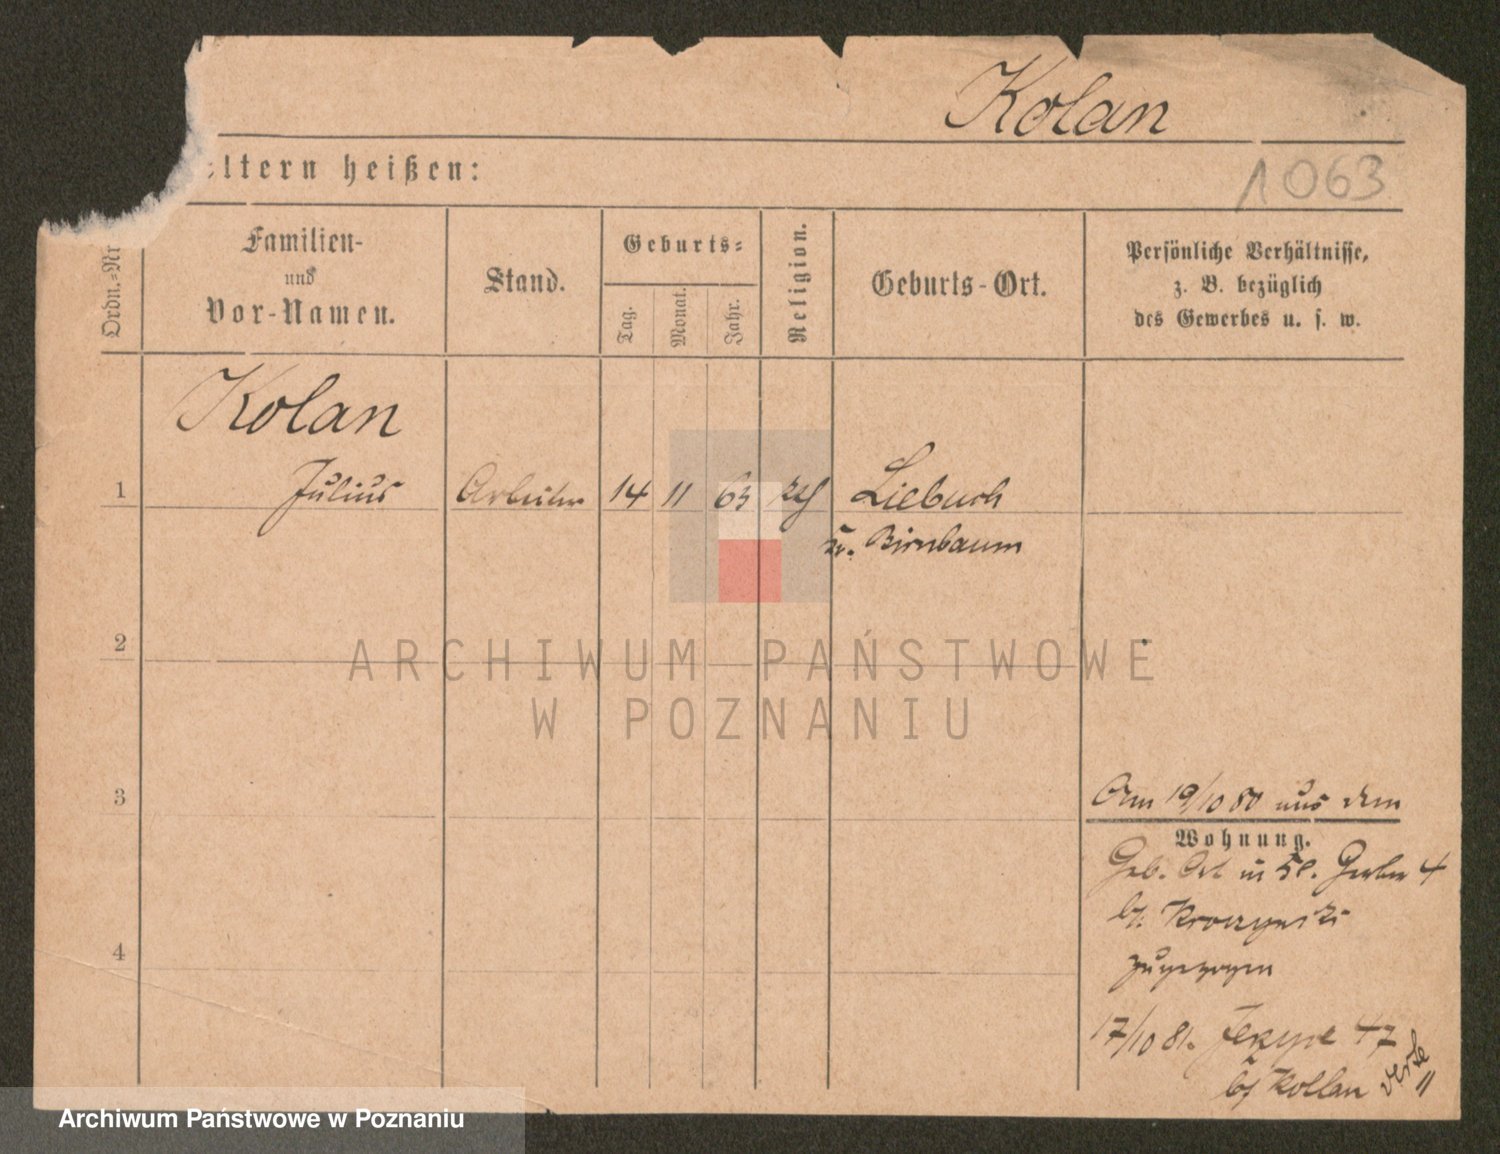 Kolan
ltern heißen:
1063
Ordn.=Nr
Familien-
und
Vor-Namen.
Stand.
Geburts=
Tag.
Monat.
Jahr.
Religion.
Geburts-Ort.
Persönliche Verhältnisse,
z. B. bezüglich
des Gewerbes u. s. w.
Kolan
1 Julius Arbeiter 14 11 63 Liebuch
Birnbaum
2
3
4
Am 19/10 80 aus dem
Wohnung.
Geb. Ort in Gerber 4
zugezogen
17/10 81. 47
bei Kollan
verte
ARCHIWUM PAŃSTWOWE
W POZNANIU
Archiwum Państwowe w Poznaniu